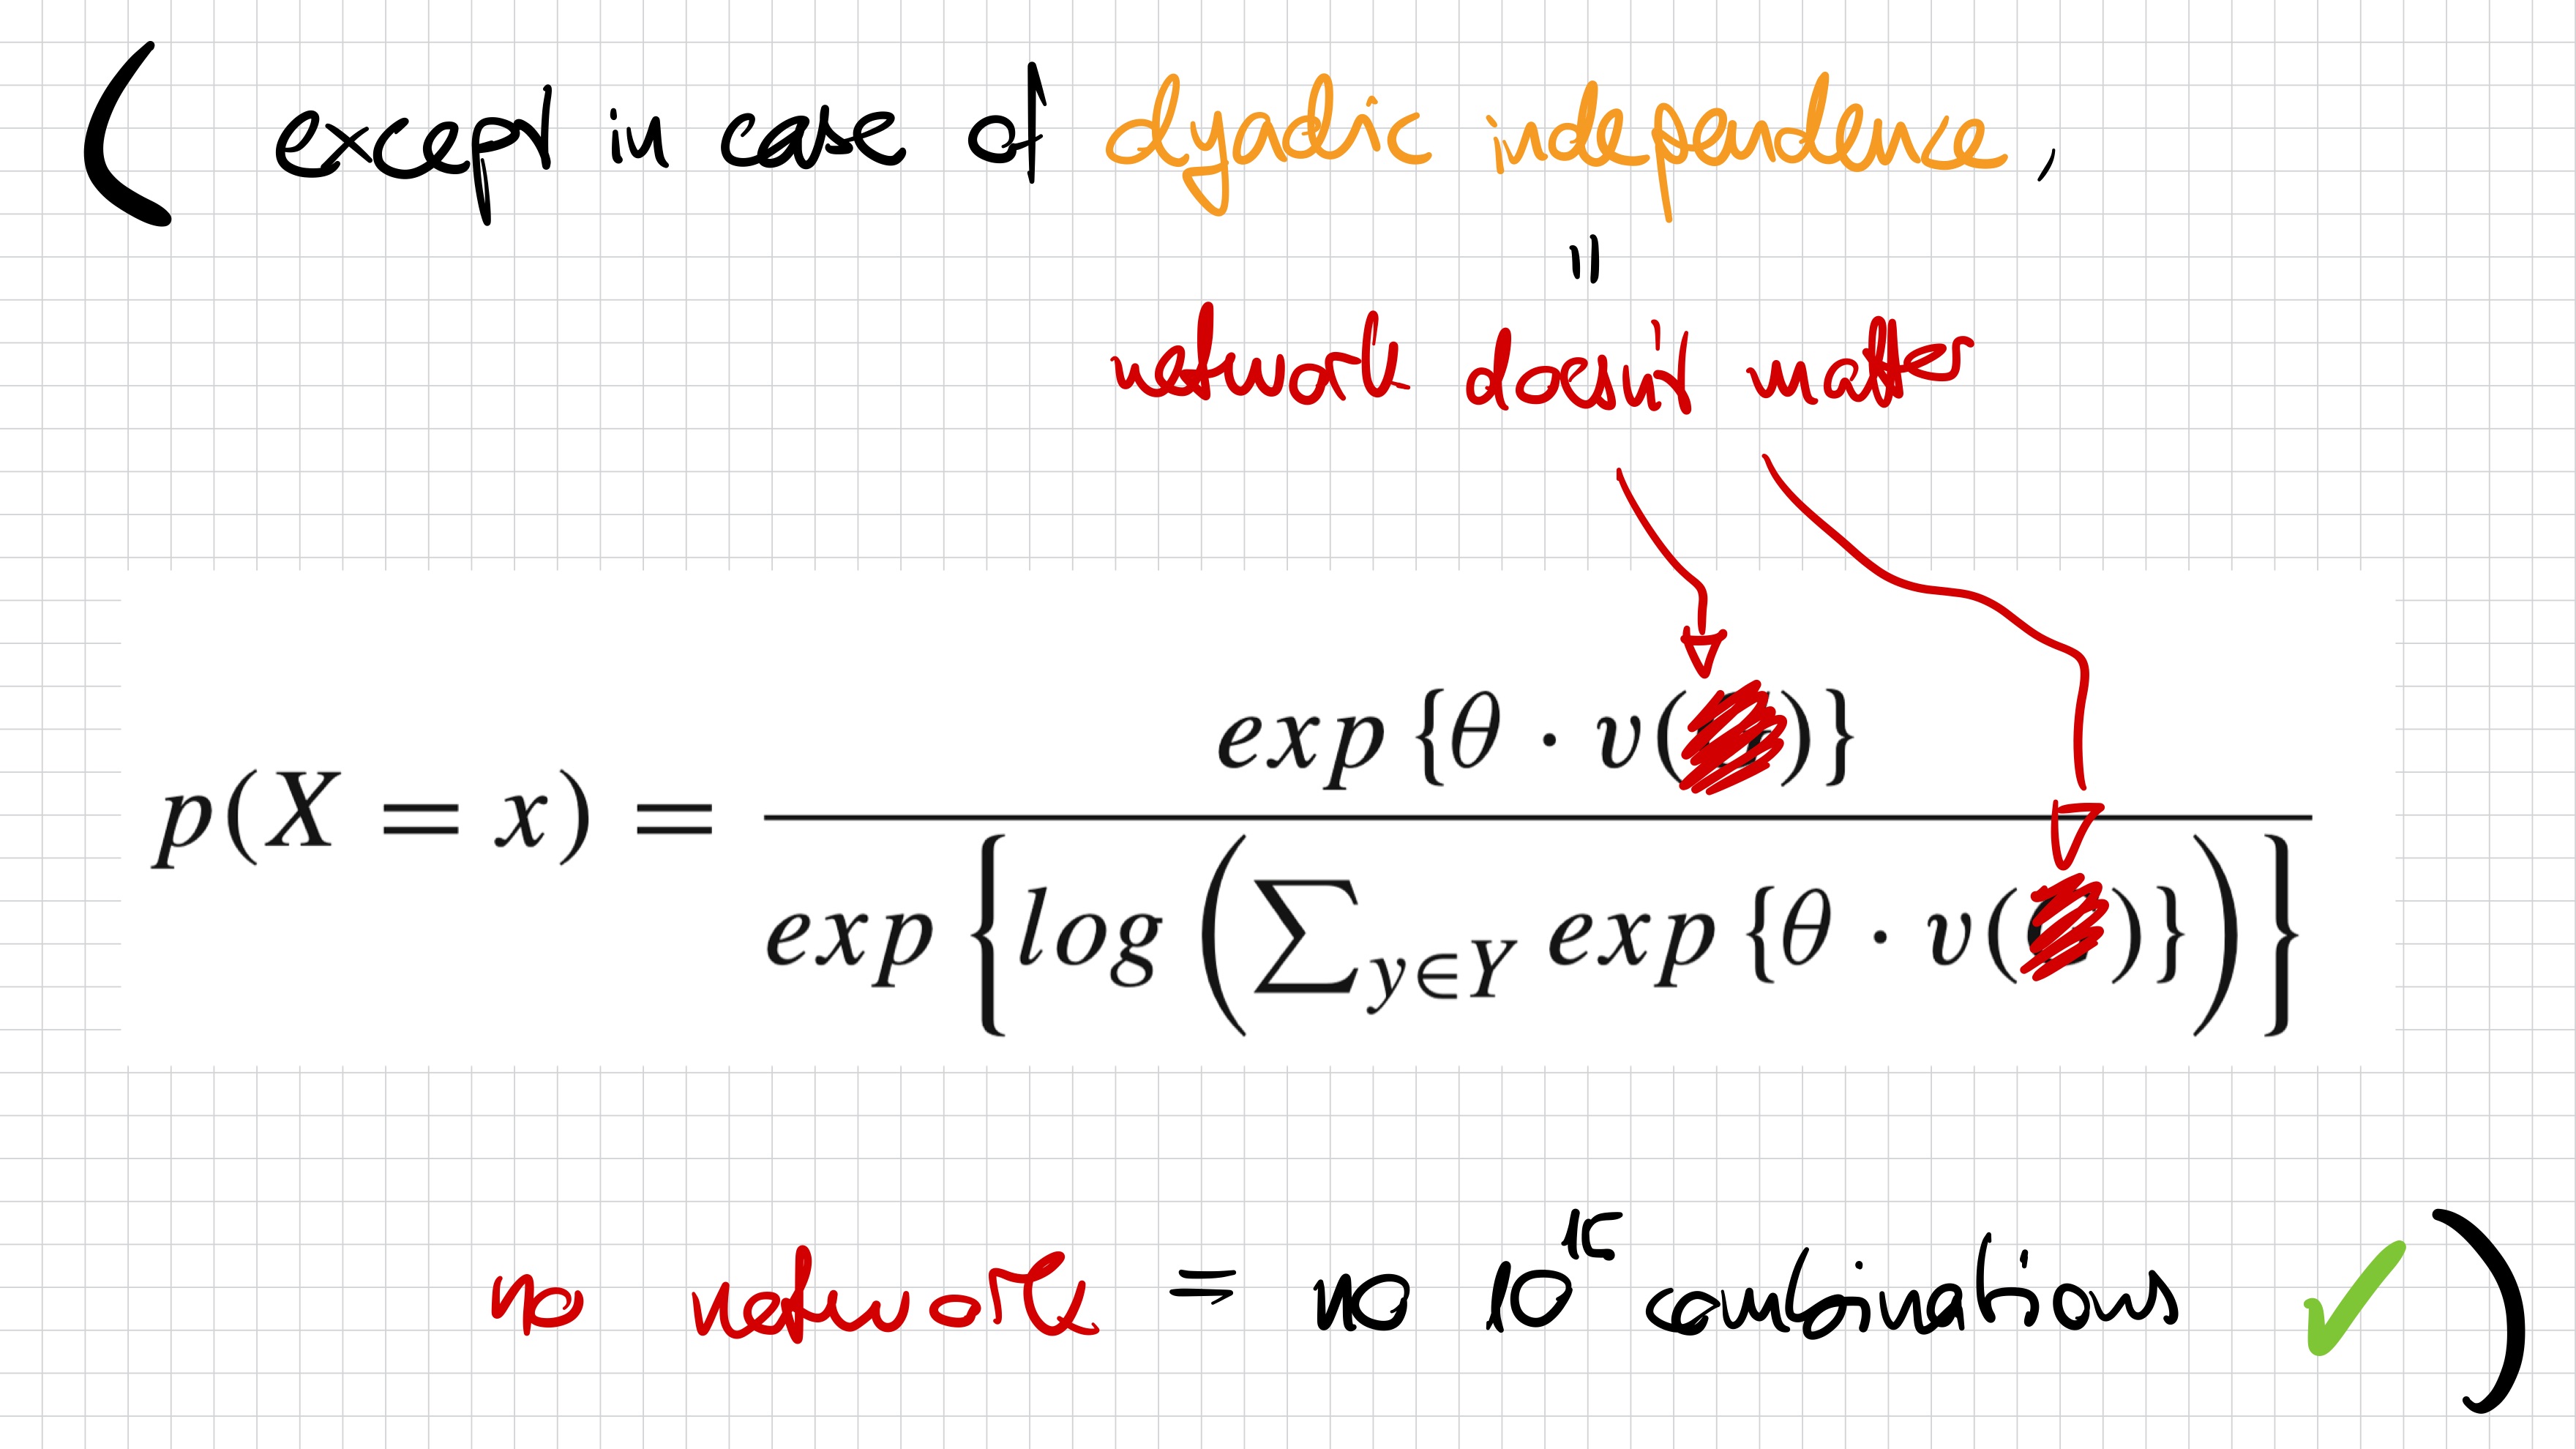 ( except in case of dyadic independence,
=
network doesn't matter
p(X = x) = exp {θ · v( )} / exp { log ( ∑_{y∈Y} exp {θ · v( )} ) }
no network = no 10^15 combinations ✓ )